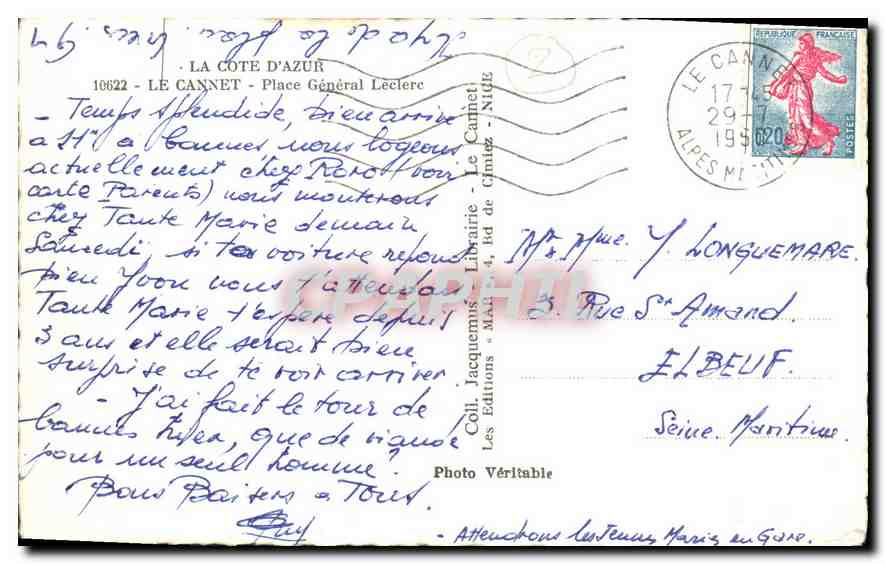 LA COTE D'AZUR
10622 - LE CANNET - Place Général Leclerc
- Temps splendide, bien arrivé
à 11h à Cannes nous logeons
actuellement chez Roro (voir
carte Parents) nous monterons
chez Tante Marie demain
Samedi, si ta voiture répond
bien Yvon nous t'attendons
Tante Marie t'espère depuis
3 ans et elle serait bien
surprise de te voir arriver.
- J'ai fait le tour de
Cannes hier, que de viande
pour un seul homme!
Bons Baisers à Tous.
Guy
Coll. Jacquemus Librairie - Le Cannet
Les Editions « MAR 4, Bd de Cimiez - NICE
Photo Véritable
2
REPUBLIQUE FRANÇAISE
0,20
POSTES
LE CANNET
17H45
29-7
19
ALPES MARITIMES
Mr & Mme. Y. LONGUEMARE.
3. Rue St Amand.
ELBEUF.
Seine Maritime.
- Attendrons les Jeunes Mariés en Gare.
CPAPHIL